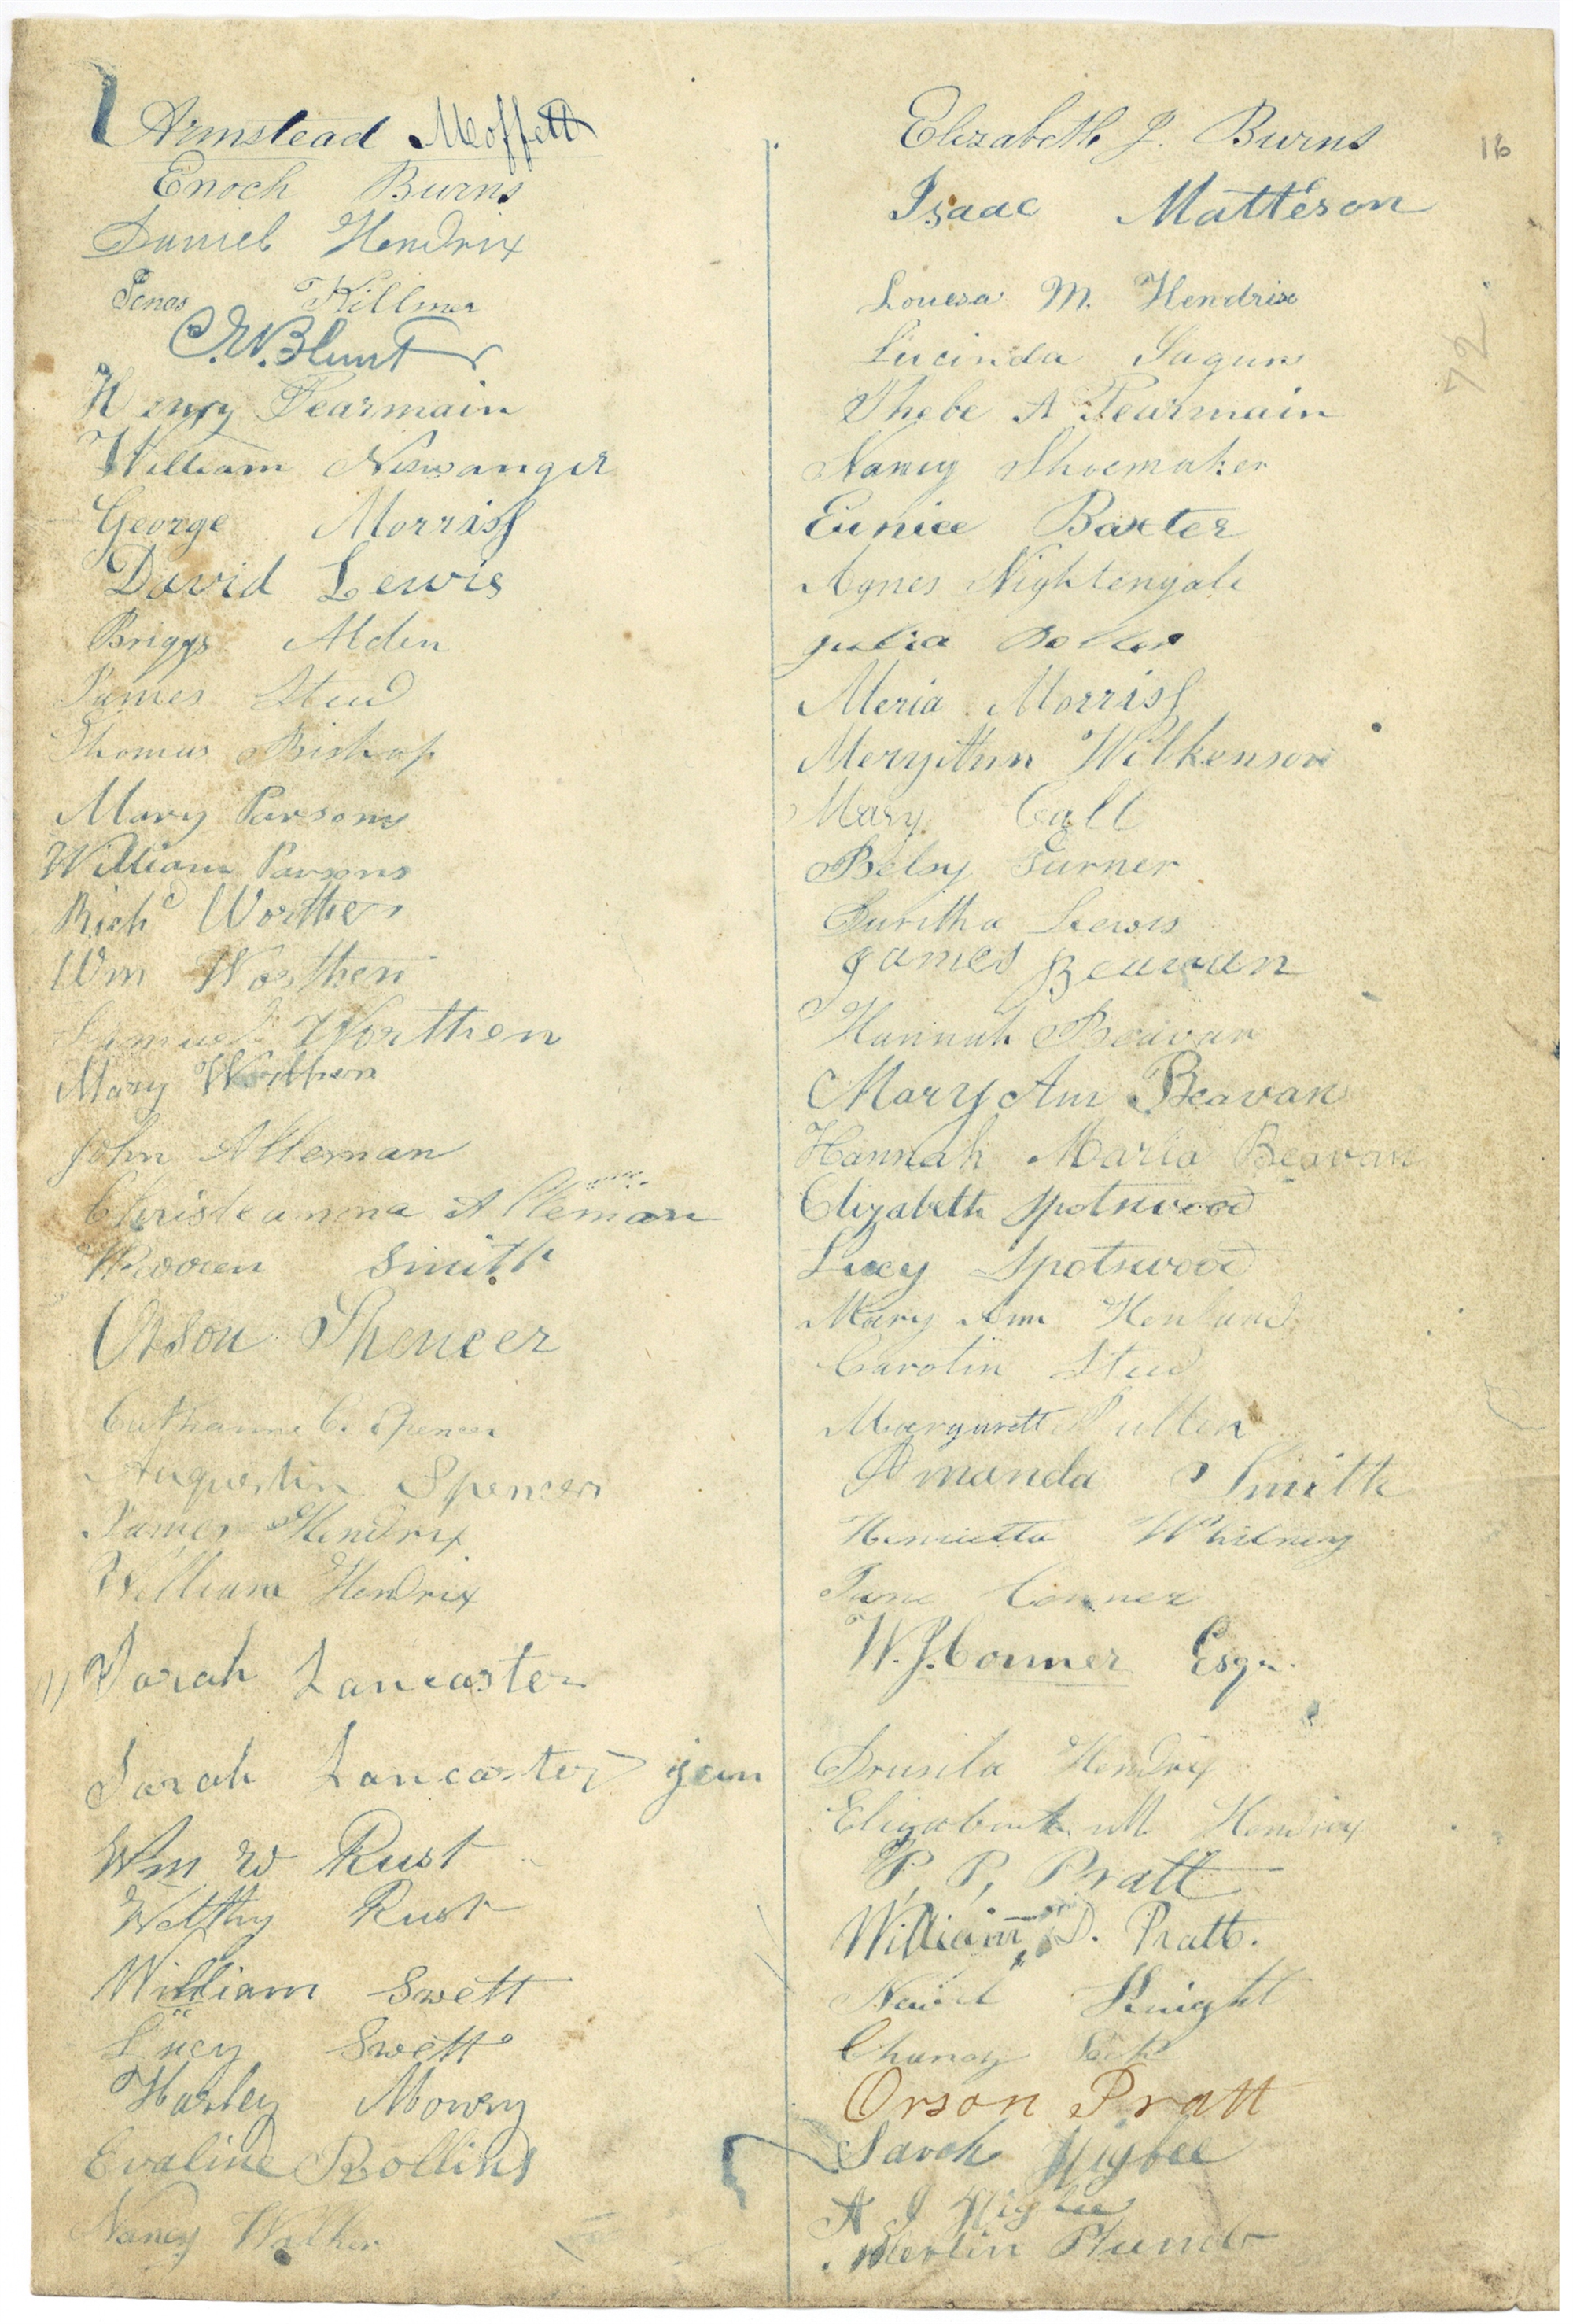 Armstead Moffett
Enoch Burns
Daniel Hendrix
Jonas Killmer
C. W. Blunt
Henry Pearmain
William Niswanger
George Morriss
David Lewis
Briggs Alden
James Steed
Thomas Bishop
Mary Parsons
William Parsons
Richd Worthen
Wm Worthen
Samuel Worthen
Mary Worthen
John Alleman
Christeanna Alleman
Warren Smith
Orson Spencer
Catharine C. Spencer
Augustin Spencer
James Hendrix
William Hendrix
Sarah Lancaster
Sarah Lancaster jun
Wm W Rust
Welthy Rust
William Swett
Lucy Swett
Harley Mowry
Evaline Rollins
Nancy Walker
Elizabeth J. Burns
16
Isaac Matteson
Louesa M. Hendrix
72
Lucinda
Phebe A Pearmain
Nancy Shoemaker
Eunice Baxter
Agnes Nightengale
Julia
Meria Morriss
MeryAnn Wilkenson
Mary Call
Betsy Turner
Duritha Lewis
James Beavan
Hannah Beavan
Mary Ann Beavan
Hannah Maria Beavan
Elizabeth Spotswood
Lucy Spotswood
Mary Ann
Carolin Steed
Margarett Pullen
Amanda Smith
Henrietta Whitney
Jane Conner
W. J. Conner Esqr.
Drusila Hendrix
M Hendrix
P. P. Pratt
William D. Pratt.
Knight
Orson Pratt
Sarah Higbee
A J Higbee
Merlin Plumb